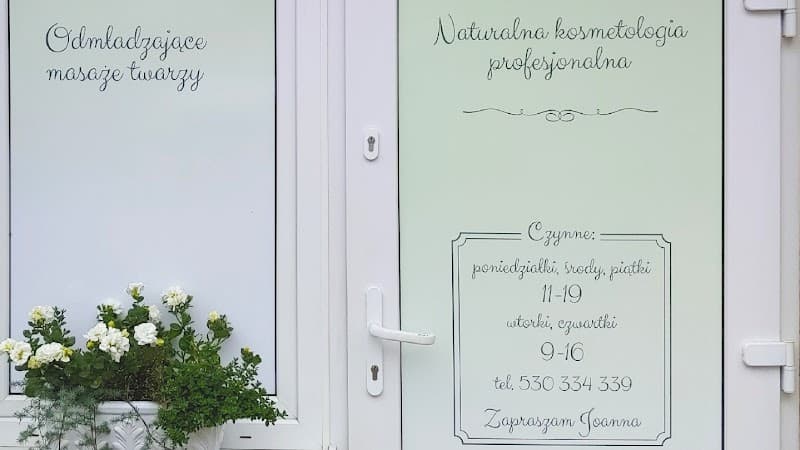 Odmładzające
masaże twarzy
Naturalna kosmetologia
profesjonalna
Czynne:
poniedziałki, środy, piątki
11-19
wtorki, czwartki
9-16
tel. 530 334 339
Zapraszam Joanna